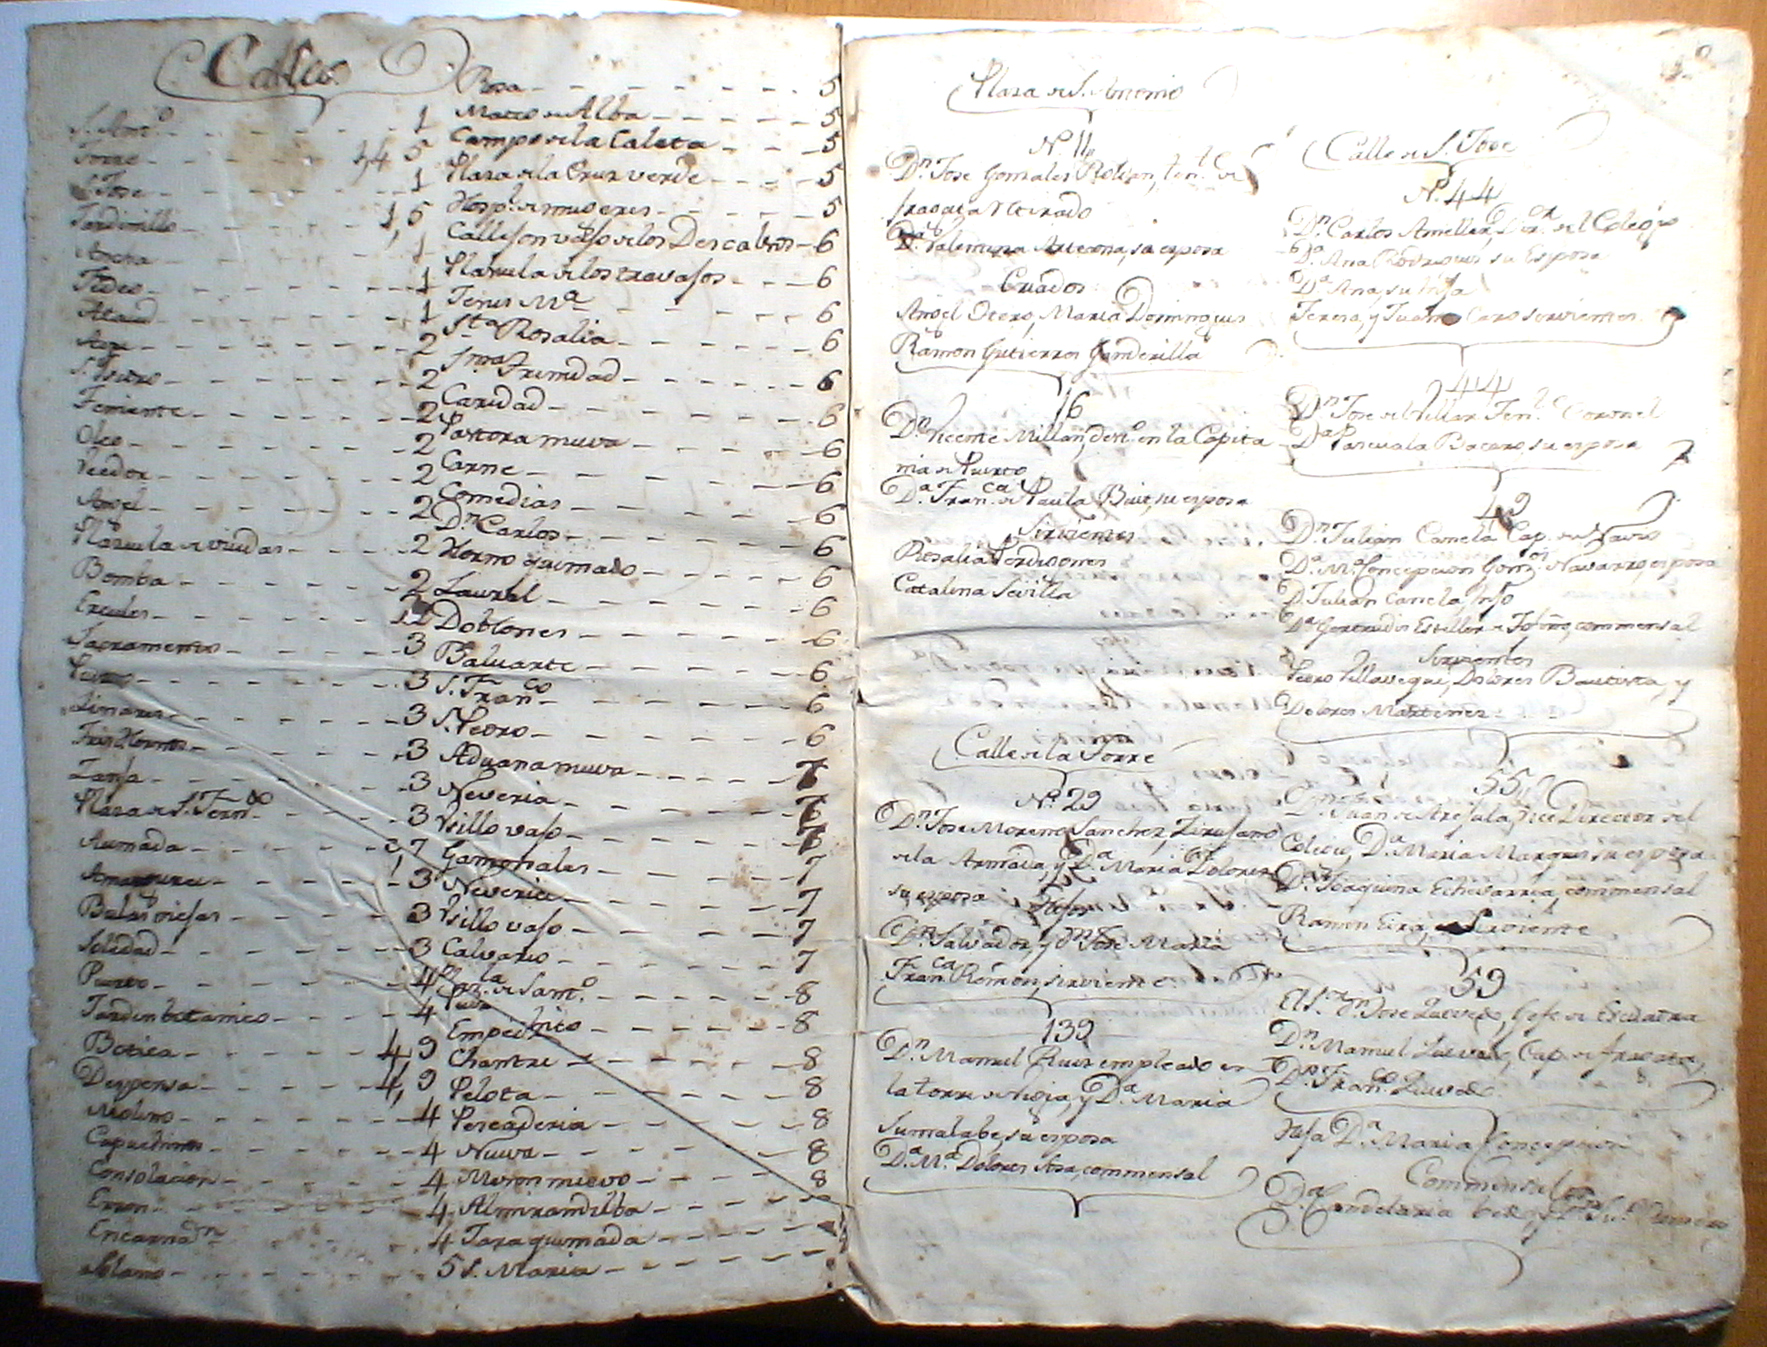 Calles
S. Ant.o 1
Torre 34 5
S. Jose 1
Jardinillo 1, 5
Ancha 1
Fideo 1
Ataud 1
Aire 2
S. Isidro 2
Teniente 2
Oleo 2
Veedor 2
Angel 2
Plazuela de viudas 2
Bomba 2
Ercules
Sacramento 3
Puerto 3
Linares 3
Tres Hornos 3
Zanja 3
Plaza de S. Fern.do 3
Aumada 7
Amargura 3
Bulas viejas 3
Soledad 3
Puerto 4
Jardin botanico 4
Botica 4, 9
Despensa 4, 9
Molino 4
Capuchinos 4
Consolacion 4
Encarna.n 4
Solano 5
Rosa 5
Mateo de Alba 5
Campo de la Caleta 5
Plaza de la Cruz verde 5
Hosp.l de mugeres 5
Callejon vajo de los Descalzos 6
Plazuela de los travajos 6
Jesus M.a 6
S.ta Rosalia 6
SS.ma Trinidad 6
Caridad 6
Pastora nueva 6
Carne 6
Comedias 6
D.n Carlos 6
Horno quimado 6
Laurel 6
Doblones 6
Baluarte 6
S. Fran.co 6
S. Pedro 6
Aduana nueva 7
Neveria
Visillo vajo
Gamonales 7
Neveria 7
Visillo vajo 7
Calvario 7
8
Empedrado 8
Chantre 8
Pelota 8
Pescaderia 8
Nueva 8
Meson nuevo 8
Almirandilla
Jara quemada
S. Maria
Plaza de S. Antonio
N.o 11
D.n Jose Gonzales Roldan, ten.te de
fragata retirado
D.a Valentina Arteona, sa esposa
Criados
Angel Otero, Maria Dominguis
Ramon Gutierres Ganderilla
16
D.n Vicente Millan, dest.o en la Capita
nia de Puerto
D.a Fran.ca de Paula Buit, su esposa
Sirvientes
Rosalia Perdigones
Catalina Sevilla
Calle de la Torre
N.o 29
D.n Jose Moreno Sanchez, Zirujano
de la Armada, y D.a Maria Dolores
su esposa
Hijos
D.n Salvador, y D.n Jose Maria
Fran.ca Romon, sirviente
139
D.n Manuel Ruiz empleado en
la torre de vigia, y D.a Maria
Sumalabe, su esposa
D.a M.a Dolores Sosa, commensal
Calle de S. Jose
N.o 44
D.n Carlos Amellar, Dir.or del Colegio
D.a Ana Rodriguez su Esposa
D.a Ana, su hija
Teresa, y Juana Caro sirvientes
44
D.n Jose del Villar Ten.te Coronel
D.a Pascuala Bocaro, su esposa
49
D.n Julian Canela Cap. de Navio
D.a M.a Concepcion Gom.z Navarro, esposa
D. Julian Canela, hijo
D.a Gertrudis Estiller de Toforo, commensal
Sirvientes
Pedro Villavegui, Dolores Bautista, y
Dolores Martinez
55
D. Juan de Aresula, Vice Director del
Colegio, D.a Maria Marques su esposa
D.a Joaquina Echevarria, commensal
Ramon Eira, Sirviente
59
El S.r D.n Jose Quevedo, Gefe de Escuadra
D.n Manuel Quevedo, Cap. de fragata,
D.n Fran.co Quevedo
Hija D.a Maria Concepcion
Commensales
D.a Candelaria